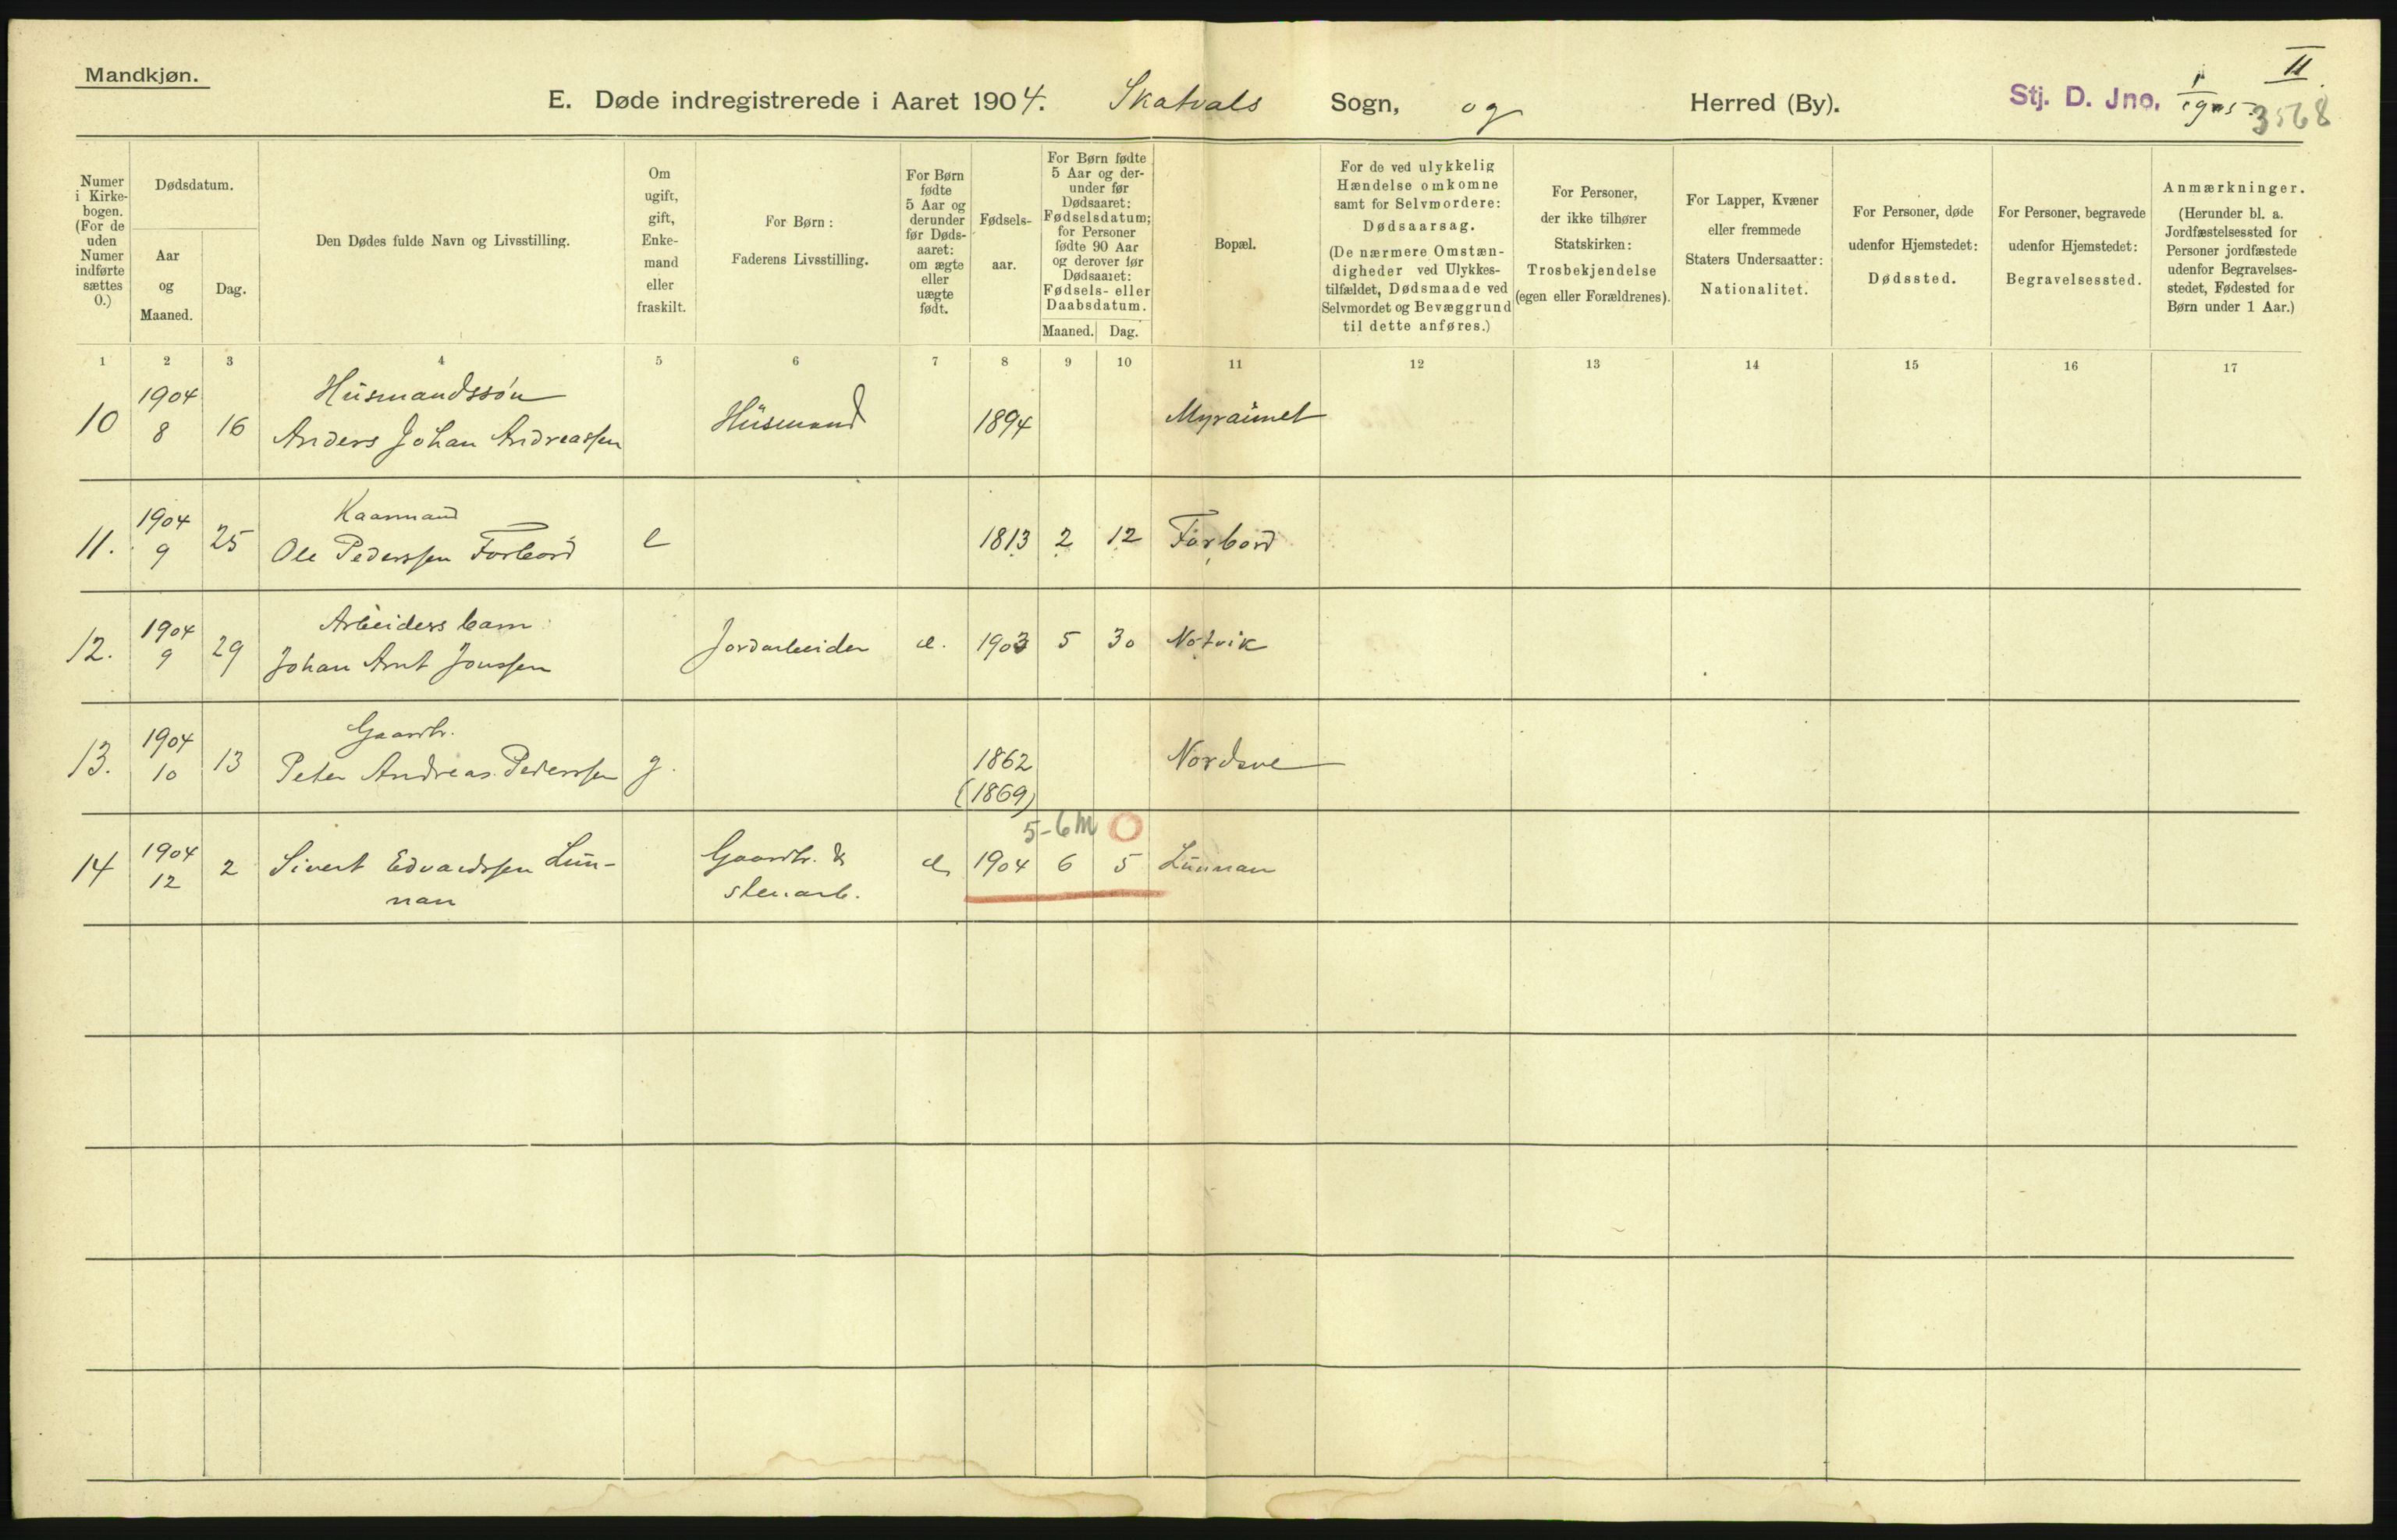 Mandkjøn.
II
E. Døde indregistrerede i Aaret 1904. Skatvals Sogn, og Herred (By). Stj. D. Jno. 3568
Numer i Kirkebogen. (For de uden Numer indførte sættes 0.)
Dødsdatum.
Aar og Maaned.
Dag.
Den Dødes fulde Navn og Livsstilling.
Om ugift, gift, Enkemand eller fraskilt.
For Børn: Faderens Livsstilling.
For Børn fødte 5 Aar og derunder før Dødsaaret: om ægte eller uægte født.
Fødselsaar.
For Børn fødte 5 Aar og derunder før Dødsaaret: Fødselsdatum; for Personer fødte 90 Aar og derover før Dødsaaret: Fødsels- eller Daabsdatum.
Maaned. Dag.
Bopæl.
For de ved ulykkelig Hændelse omkomne samt for Selvmordere: Dødsaarsag. (De nærmere Omstændigheder ved Ulykkestilfældet, Dødsmaade ved Selvmordet og Bevæggrund til dette anføres.)
For Personer, der ikke tilhører Statskirken: Trosbekjendelse (egen eller Forældrenes).
For Lapper, Kvæner eller fremmede Staters Undersaatter: Nationalitet.
For Personer, døde udenfor Hjemstedet: Dødssted.
For Personer, begravede udenfor Hjemstedet: Begravelsessted.
Anmærkninger. (Herunder bl. a. Jordfæstelsessted for Personer jordfæstede udenfor Begravelsesstedet, Fødested for Børn under 1 Aar.)
1 2 3 4 5 6 7 8 9 10 11 12 13 14 15 16 17
1904 Husmandssøn
10 8 16 Anders Johan Andreassen Husmand 1894 Myraunet
1904 Kaarmand
11. 9 25 Ole Pederssen Forbord e 1813 2 12 Forbord
1904 Arbeiders barn
12. 9 29 Johan Arnt Jonssen Jordarbeider e. 1903 5 30 Notvik
1904 Gaardbr.
13. 10 13 Peter Andreas Pederssen g. 1862 Nordsve
(1869)
5-6 M
1904
14 12 2 Sivert Edvardssen Lun- Gaardbr. & e 1904 6 5 Lunnan
nan stenarb.